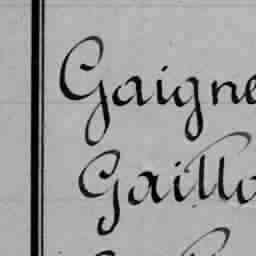 Gaigne
Gaillo